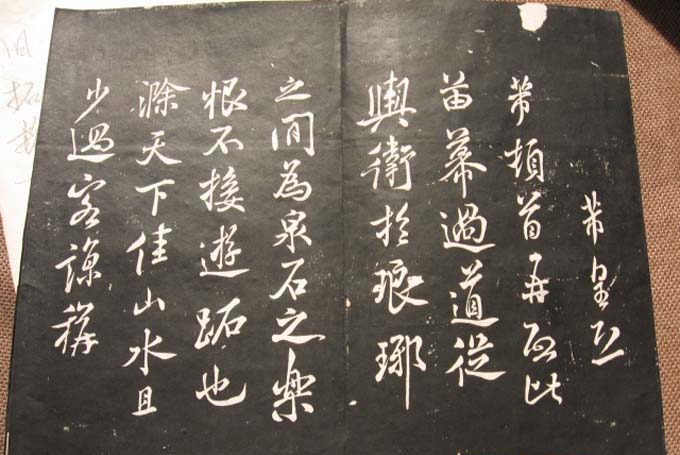 芾皇恐
芾頓首再啓比
留幕過道從
輿衛於琅琊
之間為泉石之樂
恨不接遊跖也
滁天下佳山水且
少過客諒稱
旧拓